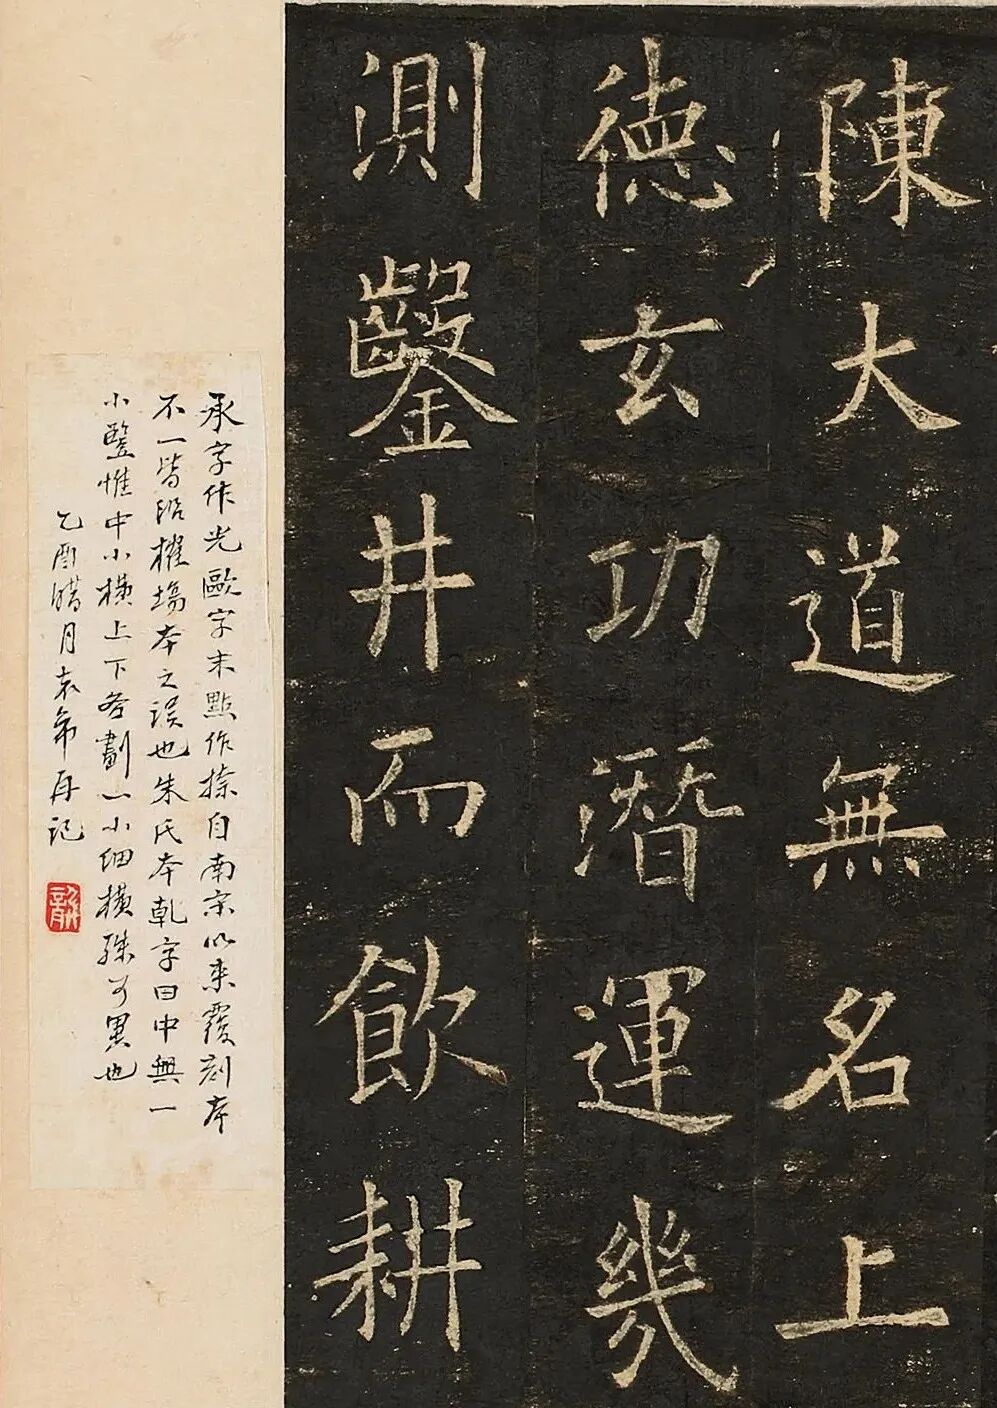 陳大道無名上
德玄功潛運幾
測鑿井而飲耕
承字作光歐字末點作捺自南宋以来覆刻本
不一皆沿權場本之誤也朱氏本乾字日中無一
小豎惟中小橫上下各劃一小細橫殊可異也
乙酉腊月袁帘再記